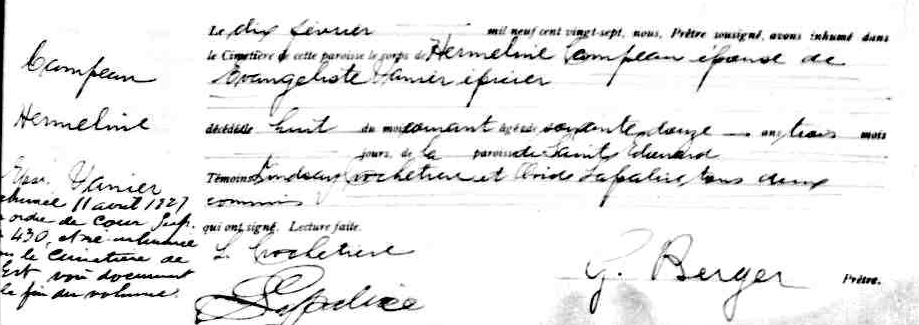 Campeau
Hermeline
Épse. Vanier
exhumée 11 avril 1927
ordre de Cour Sup.
430, et ré-inhumée
le Cimetière de
Est voir document
la fin du volume.
Le dix février mil neuf cent vingt-sept, nous, Prêtre sousigné, avons inhumé dans
le Cimetière de cette paroisse le corps de Hermeline Campeau épouse de
Evangeliste Vanier épicier
décédée le huit du mois courant âgée de soixante-douze ans trois mois
jours, de la paroisse de Saint Edouard
Témoins Lindsay Crochetiere et Ovide Lapalice, tous deux
commis
qui ont signé. Lecture faite.
L. Crochetiere
Lapalice
G. Berger Prêtre.